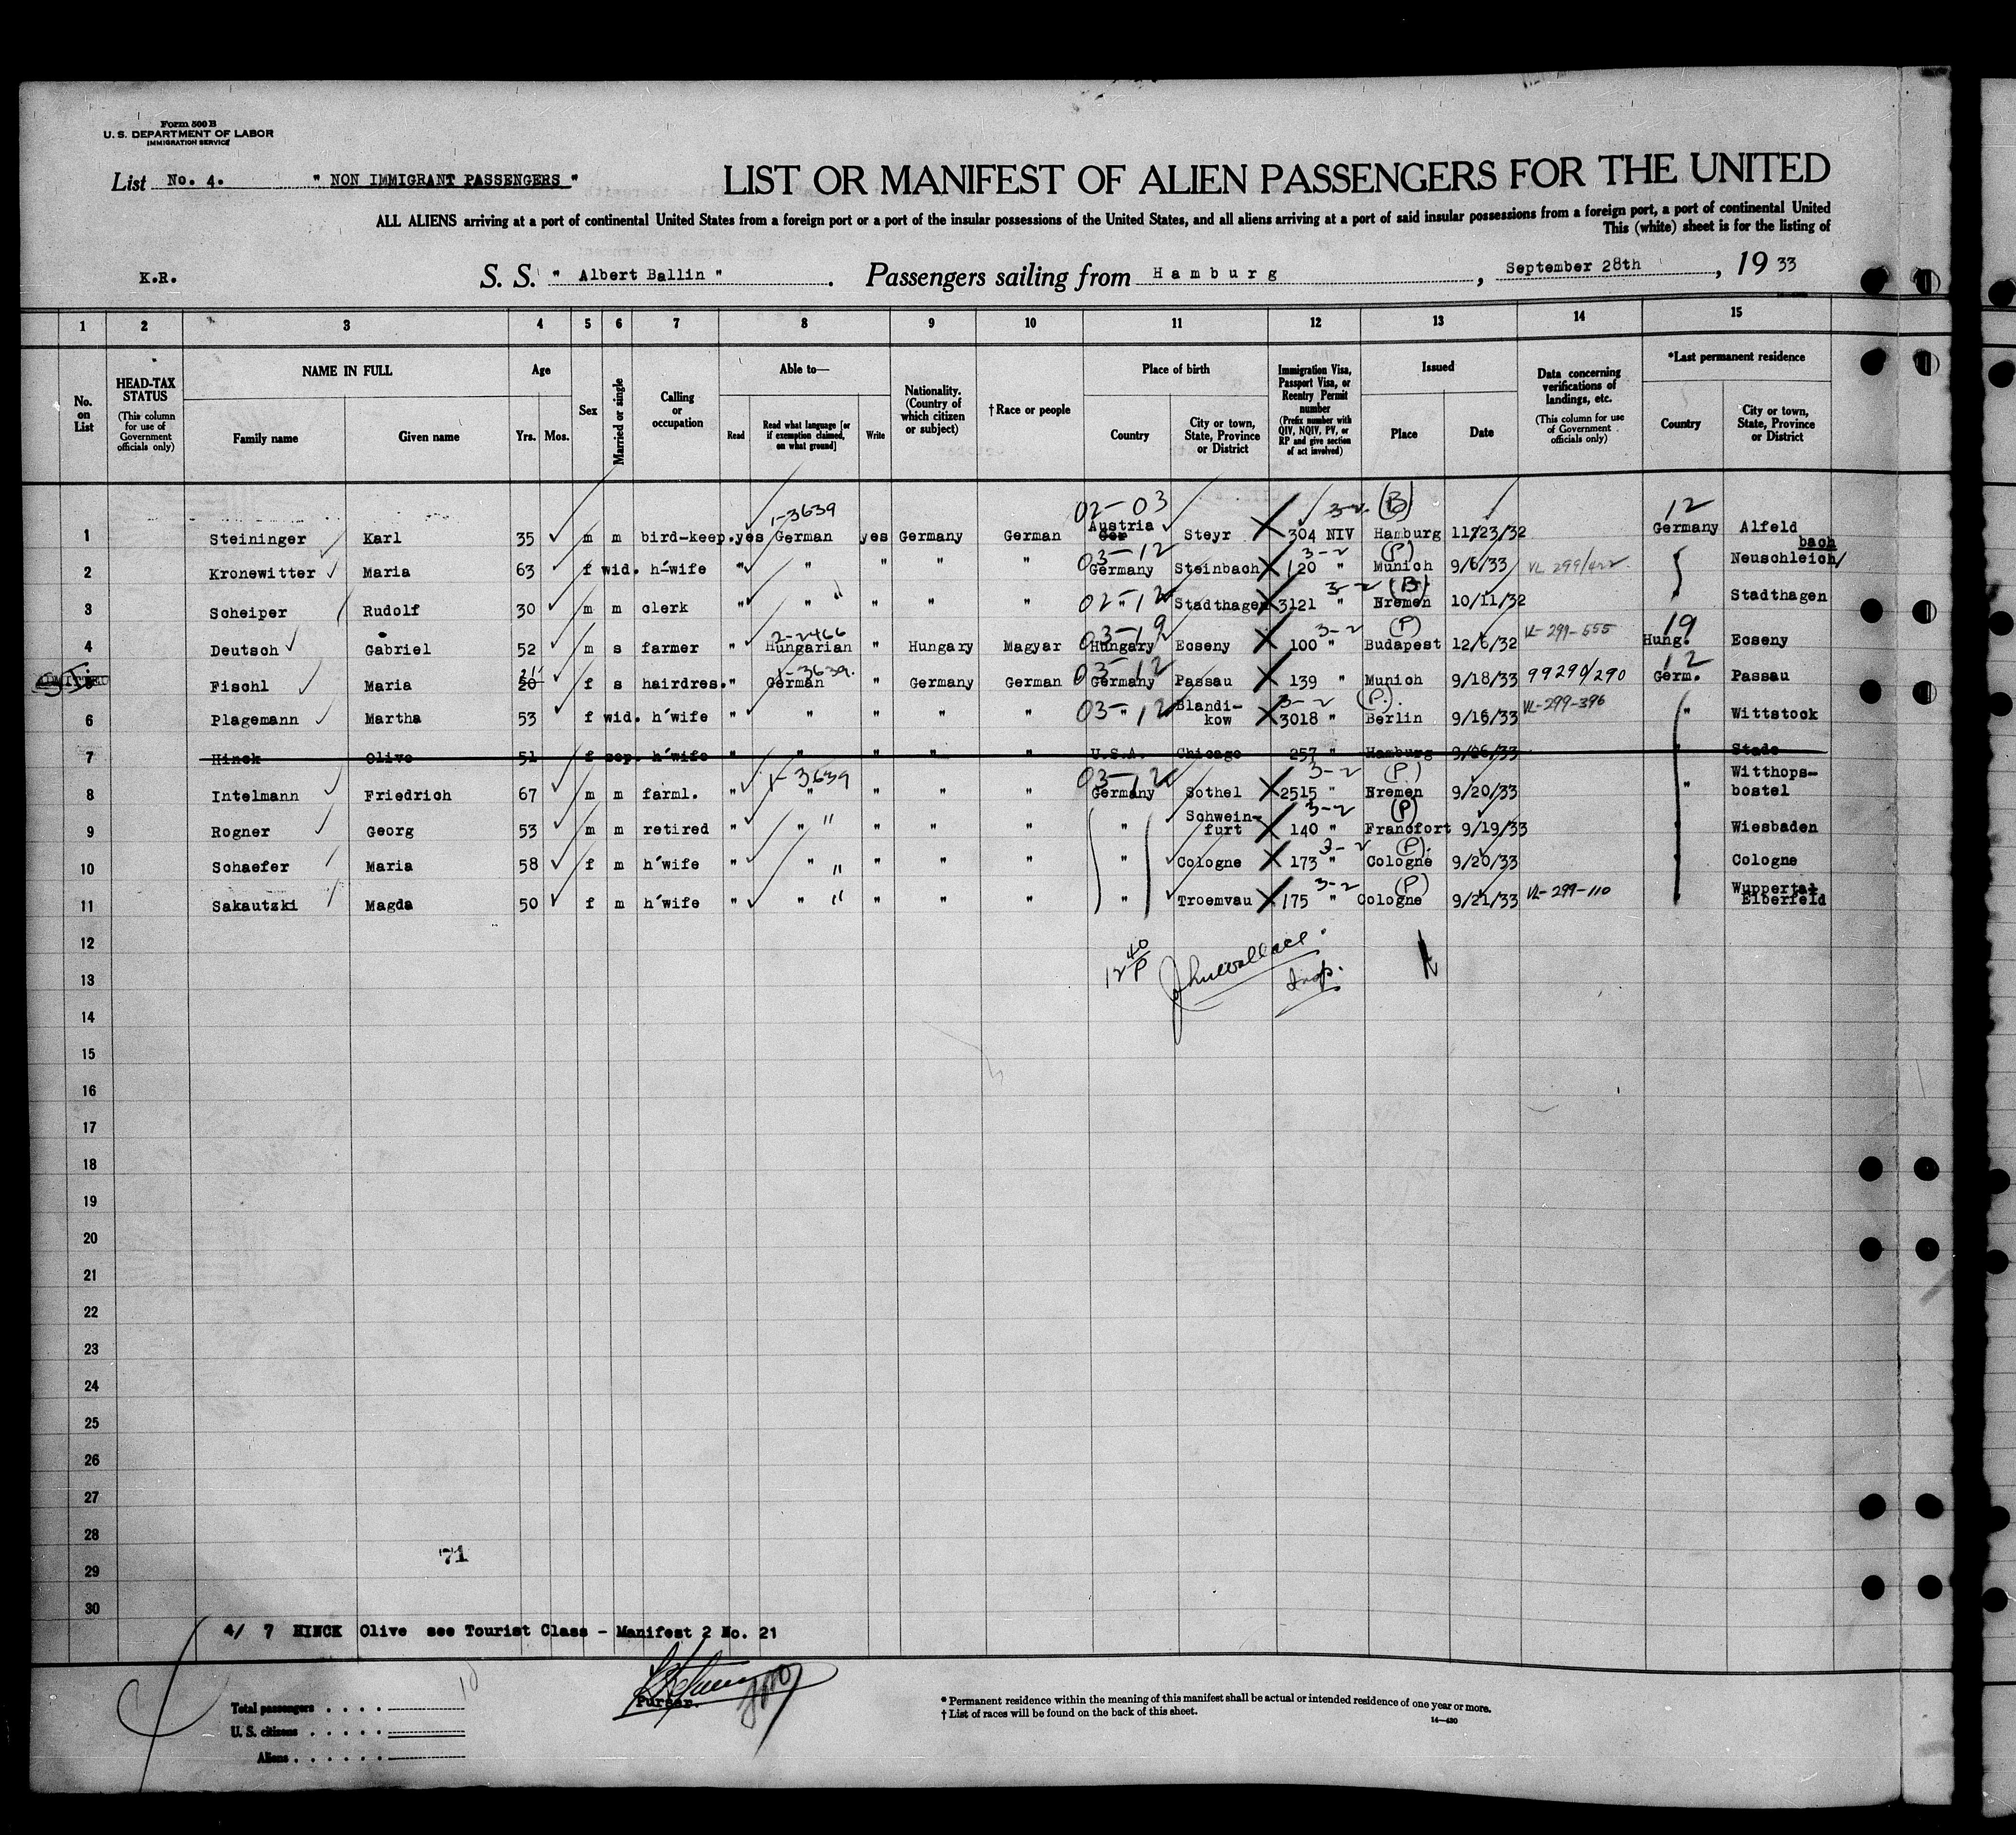 Form 500 B
U. S. DEPARTMENT OF LABOR
IMMIGRATION SERVICE
List No. 4. " NON IMMIGRANT PASSENGERS "
LIST OR MANIFEST OF ALIEN PASSENGERS FOR THE UNITED
ALL ALIENS arriving at a port of continental United States from a foreign port or a port of the insular possessions of the United States, and all aliens arriving at a port of said insular possessions from a foreign port, a port of continental United
This (white) sheet is for the listing of
K.R. S. S. " Albert Ballin " . Passengers sailing from Hamburg , September 28th , 19 33
1 2 3 4 5 6 7 8 9 10 11 12 13 14 15
No. on List
HEAD-TAX STATUS (This column for use of Government officials only)
NAME IN FULL Family name Given name
Age Yrs. Mos.
Sex
Married or single
Calling or occupation
Able to— Read Read what language [or if exemption claimed, on what ground] Write
Nationality. (Country of which citizen or subject)
† Race or people
Place of birth Country City or town, State, Province or District
Immigration Visa, Passport Visa, or Reentry Permit number (Prefix number with QIV, NQIV, PV, or RP and give section of act involved)
Issued Place Date
Data concerning verifications of landings, etc. (This column for use of Government officials only)
*Last permanent residence Country City or town, State, Province or District
1-3639 02-03 3-2 (B) 12
1 Steininger Karl 35 m m bird-keep. yes German yes Germany German Austria Ger Steyr 304 NIV Hamburg 11/23/32 Germany Alfeld
03-12 3-2 (P) bach
2 Kronewitter Maria 63 f wid. h'wife " " " " " Germany Steinbach 120 " Munich 9/6/33 VL 299/422 Neuschleich/
3-2 (B)
3 Scheiper Rudolf 30 m m clerk " " " " " 02-12 " Stadthagen 3121 " Bremen 10/11/32 Stadthagen
2-2466 03-19 3-2 (P) VL-299-555 19
4 Deutsch Gabriel 52 m s farmer " Hungarian " Hungary Magyar Hungary Ecseny 100 " Budapest 12/6/32 Hung. Ecseny
21 1-3639 03-12 12
5 Fischl Maria 20 f s hairdres. " German " Germany German Germany Passau 139 " Munich 9/18/33 99290/290 Germ. Passau
3-2 (P) VL-299-396
6 Plagemann Martha 53 f wid. h'wife " " " " " 03-12 " Blandi-kow 3018 " Berlin 9/16/33 " Wittstock
7 Hinck Olive 51 f sep. h'wife " " " " " U.S.A. Chicago 257 " Hamburg 9/26/33 " Stade
1-3639 03-12 3-2 (P)
8 Intelmann Friedrich 67 m m farml. " " " " " Germany Sothel 2515 " Bremen 9/20/33 " Witthops-bostel
3-2 (P)
9 Rogner Georg 53 m m retired " " " " " " Schwein-furt 140 " Francfort 9/19/33 Wiesbaden
3-2 (P)
10 Schaefer Maria 58 f m h'wife " " " " " " Cologne 173 " Cologne 9/20/33 Cologne
3-2 (P)
11 Sakautzki Magda 50 f m h'wife " " " " " " Troemvau 175 " Cologne 9/21/33 VL-299-110 Wuppertal Elberfeld
12
12 40 P John Wallace Insp.
13
14
15
16
17
18
19
20
21
22
23
24
25
26
27
28
71
29
30
4/ 7 HINCK Olive see Tourist Class - Manifest 2 No. 21
Total passengers . . . . 10
U. S. citizens . . . . .
Aliens . . . . . .
Purser.
* Permanent residence within the meaning of this manifest shall be actual or intended residence of one year or more.
† List of races will be found on the back of this sheet.
14—430